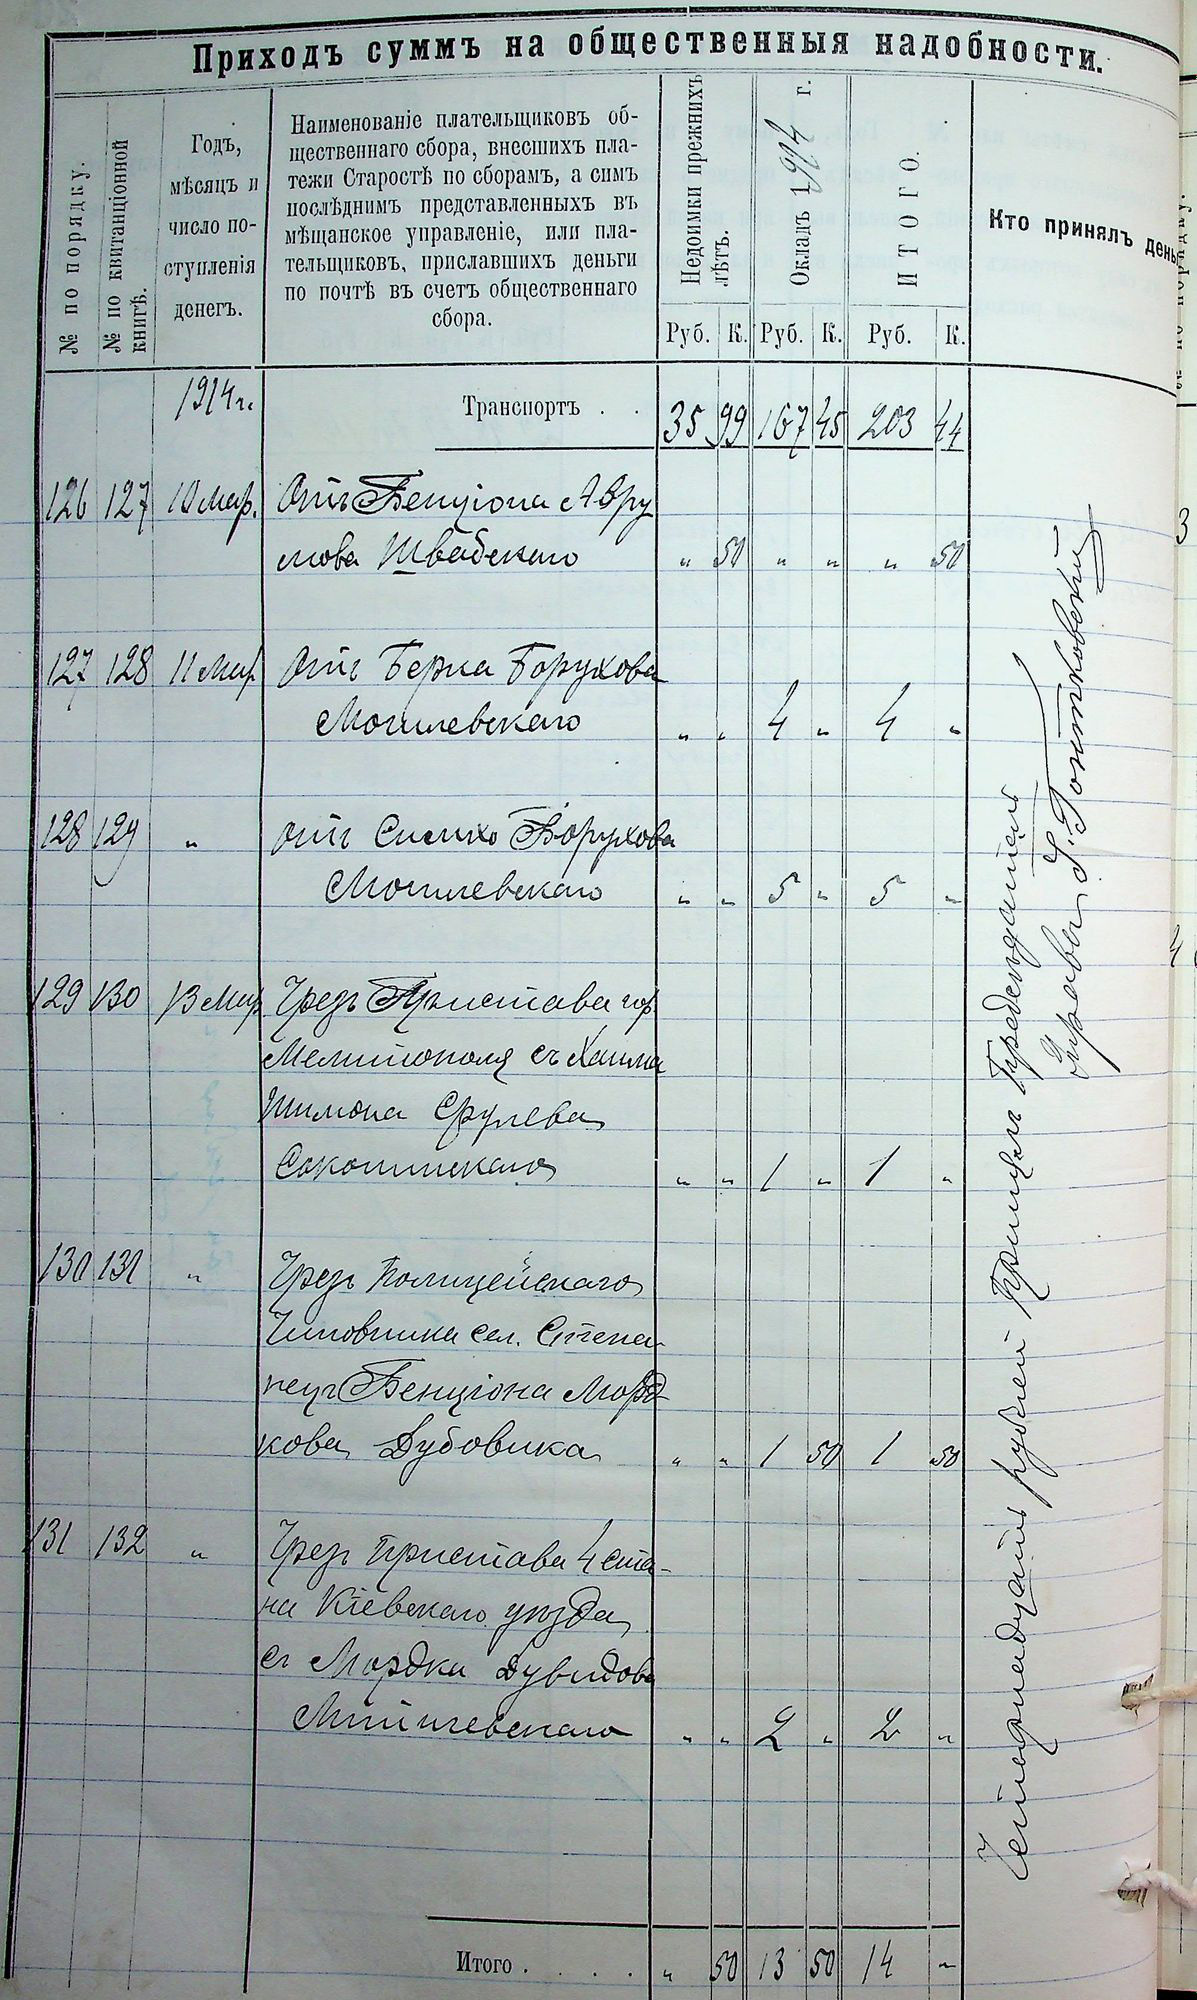 Приходъ суммъ на общественныя надобности.
№ по порядку.
№ по квитанціонной книгѣ.
Годъ,
мѣсяцъ и
число по-
ступленія
денегъ.
Наименованіе плательщиковъ об-
щественнаго сбора, внесшихъ пла-
тежи Старостѣ по сборамъ, а симъ
послѣднимъ представленныхъ въ
мѣщанское управленіе, или пла-
тельщиковъ, приславшихъ деньги
по почтѣ въ счетъ общественнаго
сбора.
Недоимки прежнихъ лѣтъ.
Окладъ 1914 г.
ИТОГО.
Кто принялъ деньг
Руб. К. Руб. К. Руб. К.
1914 г. Транспортъ . . 35 99 167 45 203 44
126 127 10 Мар. Отъ Бенціона Авру
мова Швабскаго " 50 " " " 50
127 128 11 Мар Отъ Берка Борухова
Могилевскаго " " 4 " 4 "
128 129 " Отъ Симхо Борухова
Могилевскаго " " 5 " 5 "
129 130 13 Мар Чрезъ Пристава гор.
Мелитополя съ Хаима
Шимона Срулева
" " 1 " 1 "
130 131 " Чрезъ Полицейскаго
Чиновника сел. Степа
нецъ Бенціона Морд
кова Дубовика " " 1 50 1 50
131 132 " Чрезъ Пристава 4 ста-
на Кіевскаго уѣзда
съ Мордка Дувидова
" " 2 " 2 "
Итого . . . . " 50 13 50 14 "
Четырнадцать рублей Принялъ Предсѣдатель
Управы